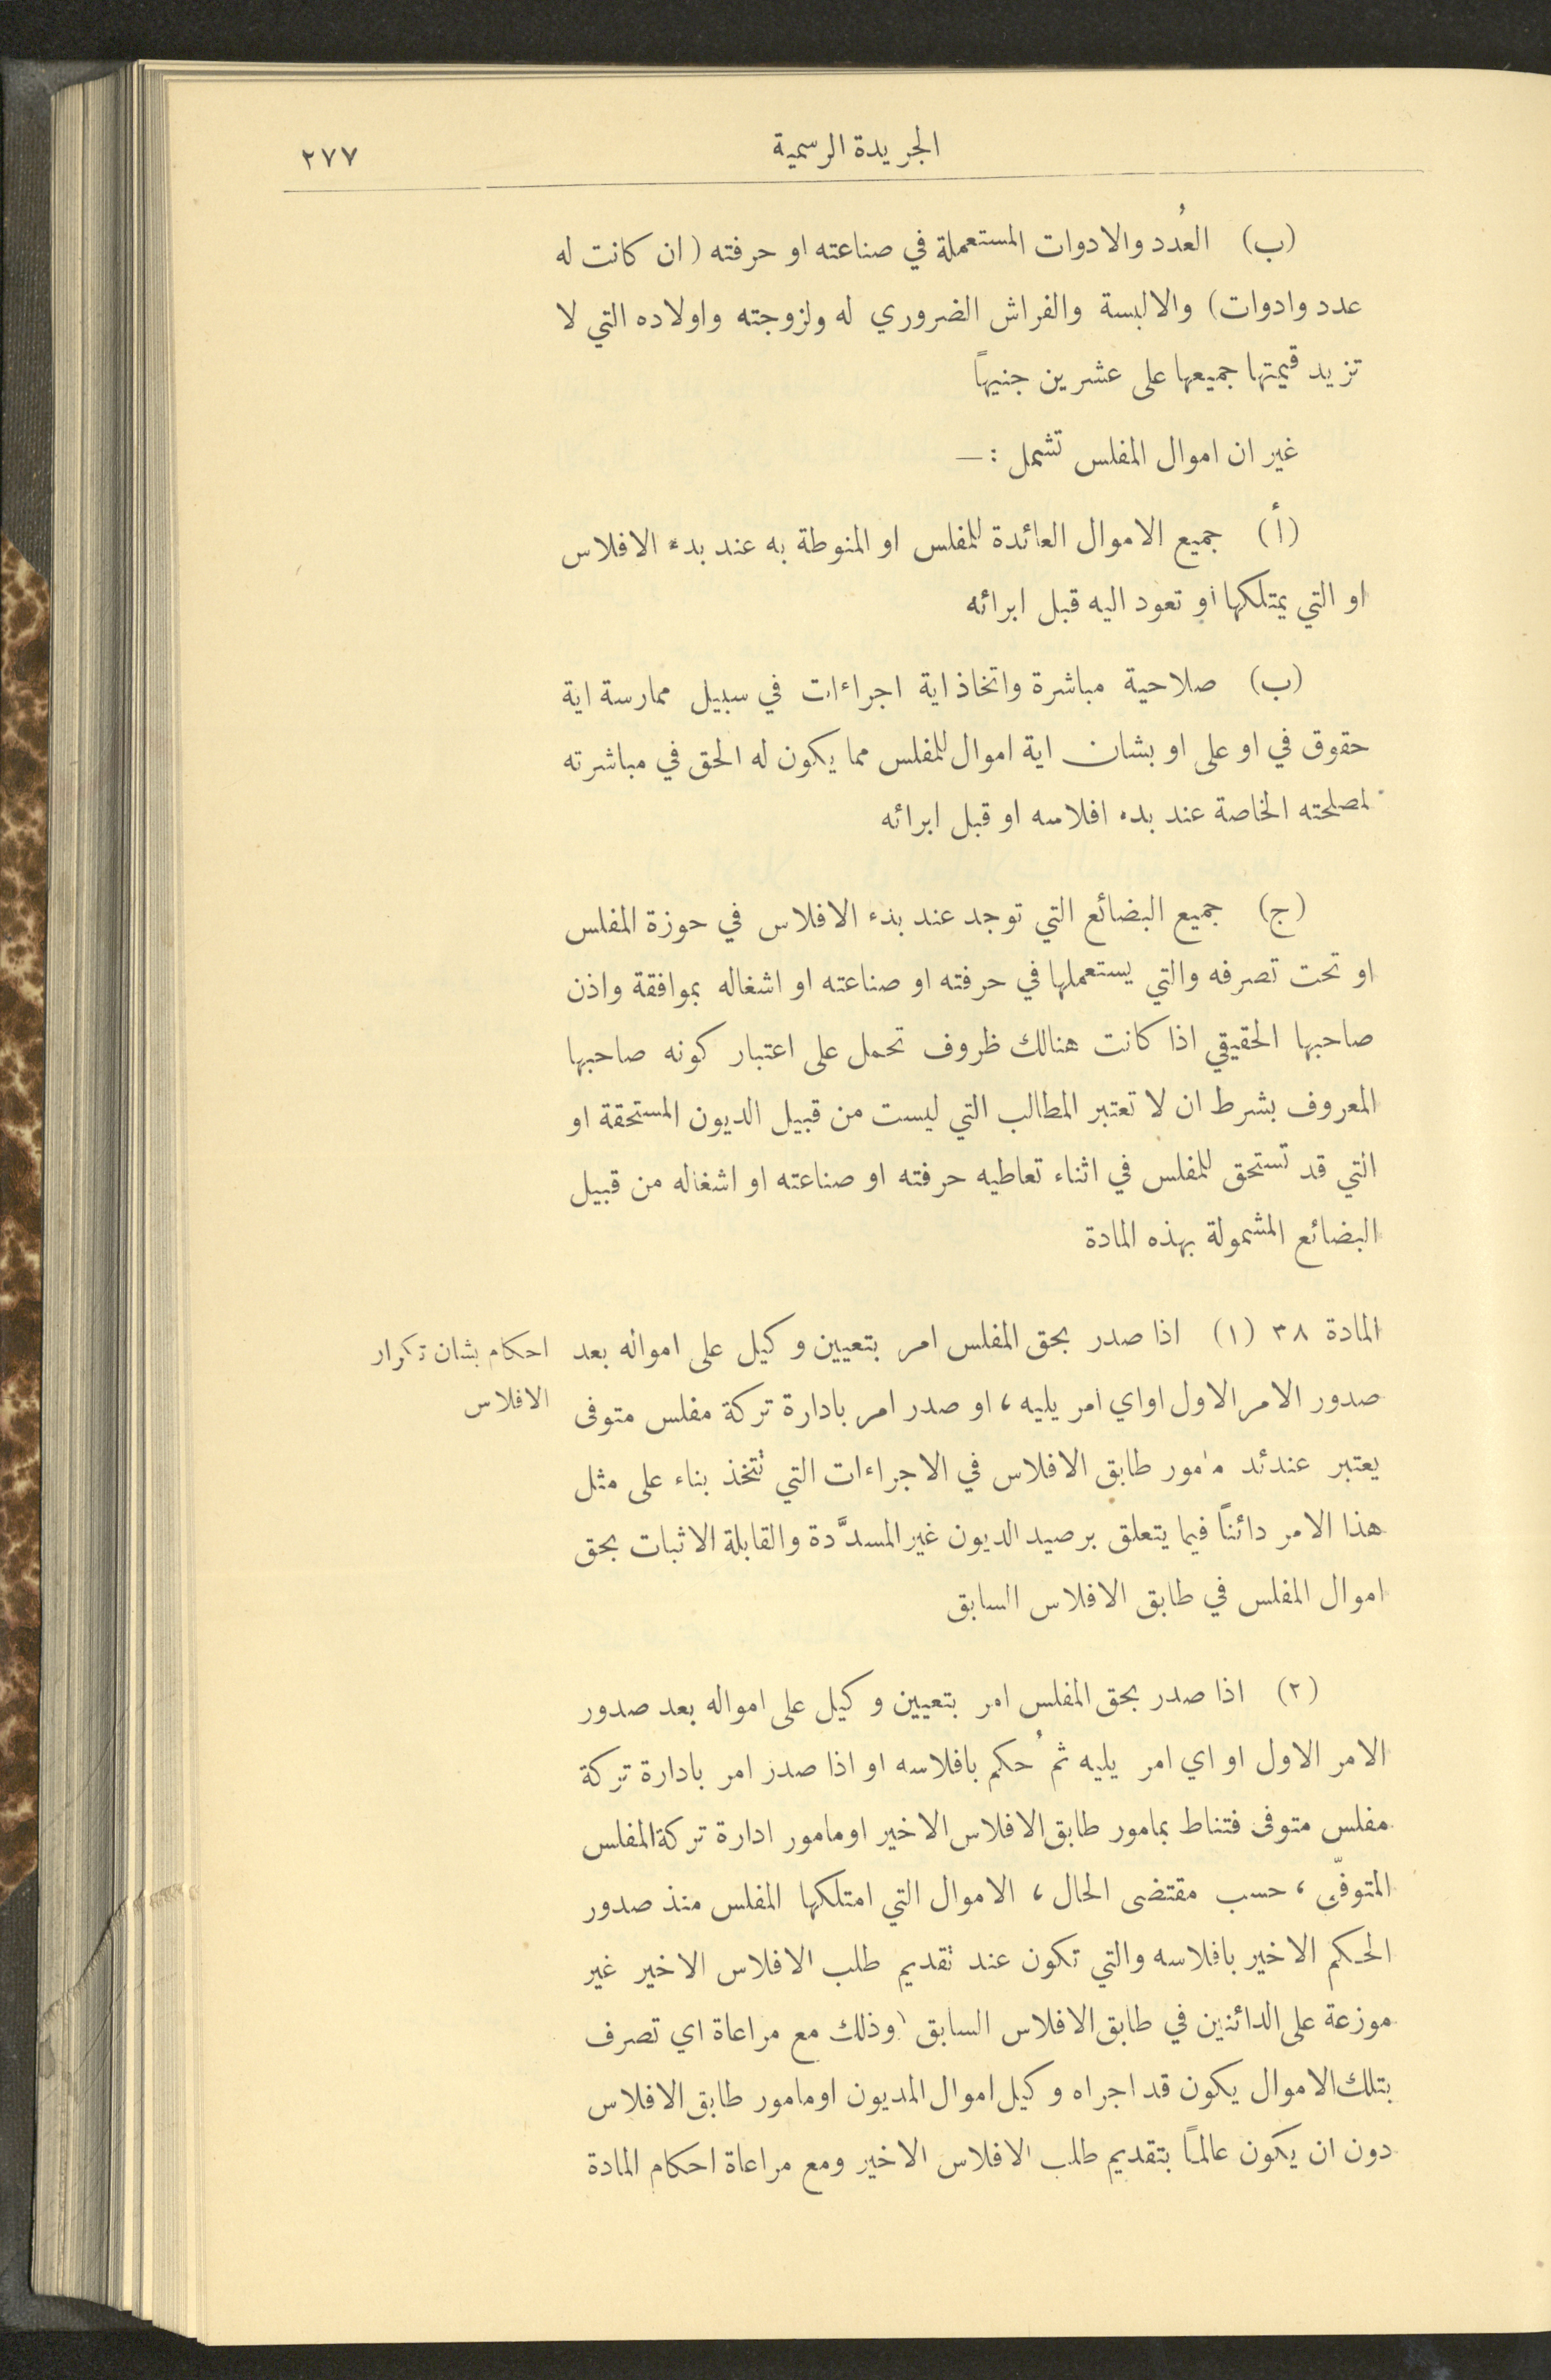 الجريدة الرسمية ٢٧٧
(ب) العُدد والادوات المستعملة في صناعته او حرفته (ان كانت له
عدد وادوات) والالبسة والفراش الضروري له ولزوجته واولاده التي لا
تزيد قيمتها جميعها على عشرين جنيهاً
غير ان اموال المفلس تشمل :—
(أ) جميع الاموال العائدة للمفلس او المنوطة به عند بدء الافلاس
او التي يمتلكها او تعود اليه قبل ابرائه
(ب) صلاحية مباشرة واتخاذ اية اجراءات في سبيل ممارسة اية
حقوق في او على او بشان اية اموال للمفلس مما يكون له الحق في مباشرته
لمصلحته الخاصة عند بدء افلاسه او قبل ابرائه
(ج) جميع البضائع التي توجد عند بدء الافلاس في حوزة المفلس
او تحت تصرفه والتي يستعملها في حرفته او صناعته او اشغاله بموافقة واذن
صاحبها الحقيقي اذا كانت هنالك ظروف تحمل على اعتبار كونه صاحبها
المعروف بشرط ان لا تعتبر المطالب التي ليست من قبيل الديون المستحقة او
التي قد تستحق للمفلس في اثناء تعاطيه حرفته او صناعته او اشغاله من قبيل
البضائع المشمولة بهذه المادة
المادة ٣٨ (١) اذا صدر بحق المفلس امر بتعيين وكيل على امواله بعد
احكام بشان تكرار
الافلاس
صدور الامر الاول او اي امر يليه ، او صدر امر بادارة تركة مفلس متوفى
يعتبر عندئد مأمور طابق الافلاس في الاجراءات التي تتخذ بناء على مثل
هذا الامر دائناً فيما يتعلق برصيد الديون غير المسدَّدة والقابلة الاثبات بحق
اموال المفلس في طابق الافلاس السابق
(٢) اذا صدر بحق المفلس امر بتعيين وكيل على امواله بعد صدور
الامر الاول او اي امر يليه ثم حُكم بافلاسه او اذا صدر امر بادارة تركة
مفلس متوفى فتناط بمامور طابق الافلاس الاخير او مامور ادارة تركة المفلس
المتوفّى ، حسب مقتضى الحال ، الاموال التي امتلكها المفلس منذ صدور
الحكم الاخير بافلاسه والتي تكون عند تقديم طلب الافلاس الاخير غير
موزعة على الدائنين في طابق الافلاس السابق وذلك مع مراعاة اي تصرف
بتلك الاموال يكون قد اجراه وكيل اموال المديون او مامور طابق الافلاس
دون ان يكون عالماً بتقديم طلب الافلاس الاخير ومع مراعاة احكام المادة